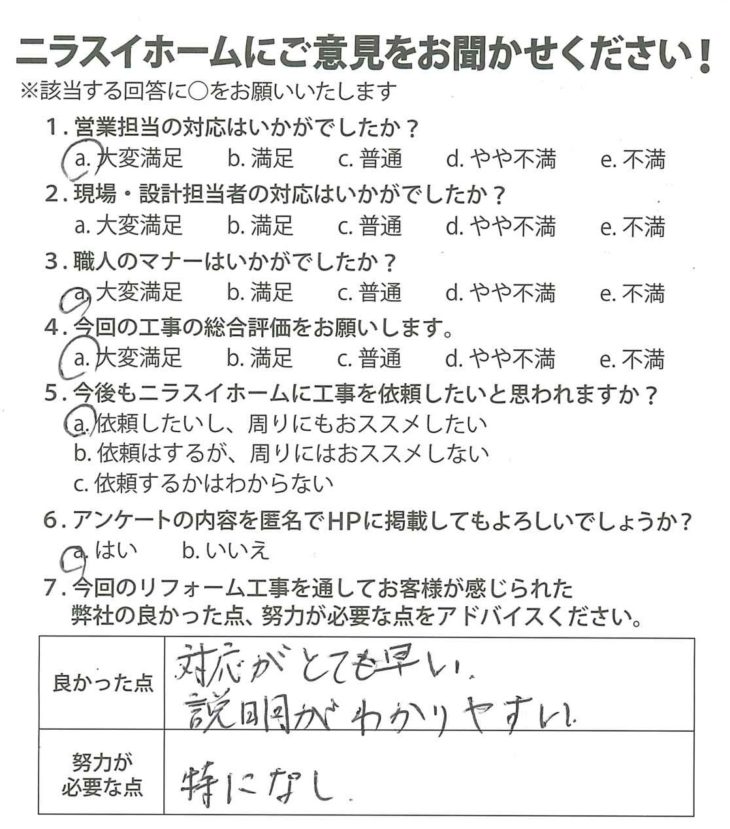 ニラスイホームにご意見をお聞かせください！
※該当する回答に○をお願いいたします
1．営業担当の対応はいかがでしたか？
a. 大変満足 b. 満足 c. 普通 d. やや不満 e. 不満
2．現場・設計担当者の対応はいかがでしたか？
a. 大変満足 b. 満足 c. 普通 d. やや不満 e. 不満
3．職人のマナーはいかがでしたか？
a. 大変満足 b. 満足 c. 普通 d. やや不満 e. 不満
4．今回の工事の総合評価をお願いします。
a. 大変満足 b. 満足 c. 普通 d. やや不満 e. 不満
5．今後もニラスイホームに工事を依頼したいと思われますか？
a. 依頼したいし、周りにもおススメしたい
b. 依頼はするが、周りにはおススメしない
c. 依頼するかはわからない
6．アンケートの内容を匿名でHPに掲載してもよろしいでしょうか？
a. はい b. いいえ
7．今回のリフォーム工事を通してお客様が感じられた
弊社の良かった点、努力が必要な点をアドバイスください。
良かった点
対応がとても早い.
説明がわかりやすい.
努力が
必要な点
特になし.